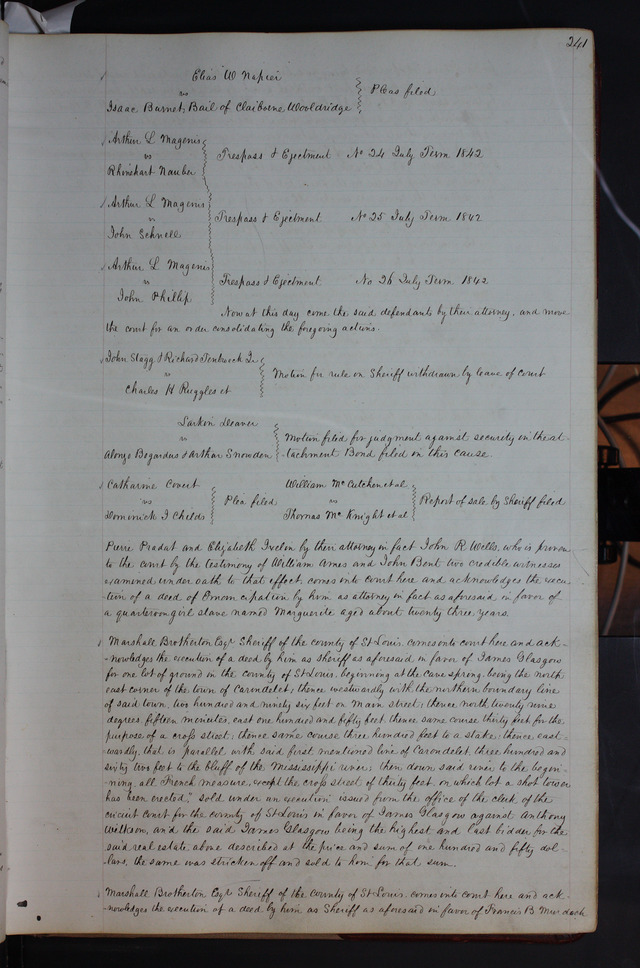 241
Elias W Napier
vs
Isaac Burnet, Bail of Claiborne Wooldridge
Pleas filed
Arthur L Magenis
vs
Rhinehart Nauber
Trespass & Ejectment No 24 July Term 1842
Arthur L Magenis
vs
John Schnell
Trespass & Ejectment No 25 July Term 1842
Arthur L Magenis
vs
John Phillip
Trespass & Ejectment No. 26 July Term 1842
Now at this day come the said defendants by their attorney, and move
the court for an order consolidating the foregoing actions.
John Stagg & Richard
vs
Charles H Ruggles et
Motion for rule on Sheriff withdrawn by leave of Court
Larkin Deaver
vs
Alonzo Bogardus & Arthur Snowden
Motion filed for judgment against security in the at-
-tachment Bond filed in this cause.
Catharine
vs
Dominick J Childs
Plea filed
William McCutchen et al
vs
Thomas McKnight et al
Report of sale by Sheriff filed
Pierre Pradat and Elizabeth by their attorney in fact John R. Wells, who is proven
to the court by the testimony of William Ames and John Bent two credible witnesses
examined under oath to that effect, comes into Court here and acknowledges the execu-
tion of a deed of Emancipation by him as attorney in fact as aforesaid in favor of
a quarteroon girl slave named Marguerite aged about twenty three years.
Marshall Brotherton Esqr Sheriff of the county of St Louis, comes into court here and ack-
-nowledges the execution of a deed by him as sheriff as aforesaid in favor of James Glasgow
for one lot of ground in the county of St Louis, beginning at the cave spring, being the north
east corner of the town of Carondelet; thence westwardly with the northern boundary line
of said town, two hundred and ninety six feet on Main street; thence north twenty nine
degrees fifteen minutes, east one hundred and fifty feet, thence same course thirty feet for the
purpose of a cross street; thence same course three hundred feet to a stake; thence east-
-wardly, that is parallel with said first mentioned line of Carondelet, three hundred and
sixty two feet to the bluff of the Mississippi river; then down said river to the begin-
-ning, all French measure, except the cross street of thirty feet, on which lot a shot tower
has been erected," sold under an execution issued from the office of the clerk of the
circuit court for the county of St Louis in favor of James Glasgow against Anthony
Wilkson, and the said James Glasgow being the highest and last bidder for the
said real estate, above described at the price and sum of one hundred and fifty dol-
-lars, the same was stricken off and sold to him for that sum.
Marshall Brotherton Esqr Sheriff of the county of St Louis, comes into court here and ack-
-nowledges the execution of a deed by him as Sheriff as aforesaid in favor of Francis B. Murdoch